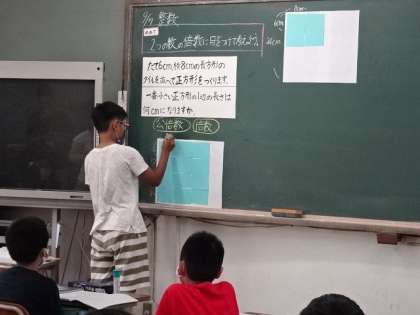 9/7 整数
めあて
2つの数の倍数に目をつけて考えよう。
たて6cm,横8cmの長方形の
タイルをならべて正方形をつくります。
一番小さい正方形の1辺の長さは
何cmになりますか。
公倍数 倍数